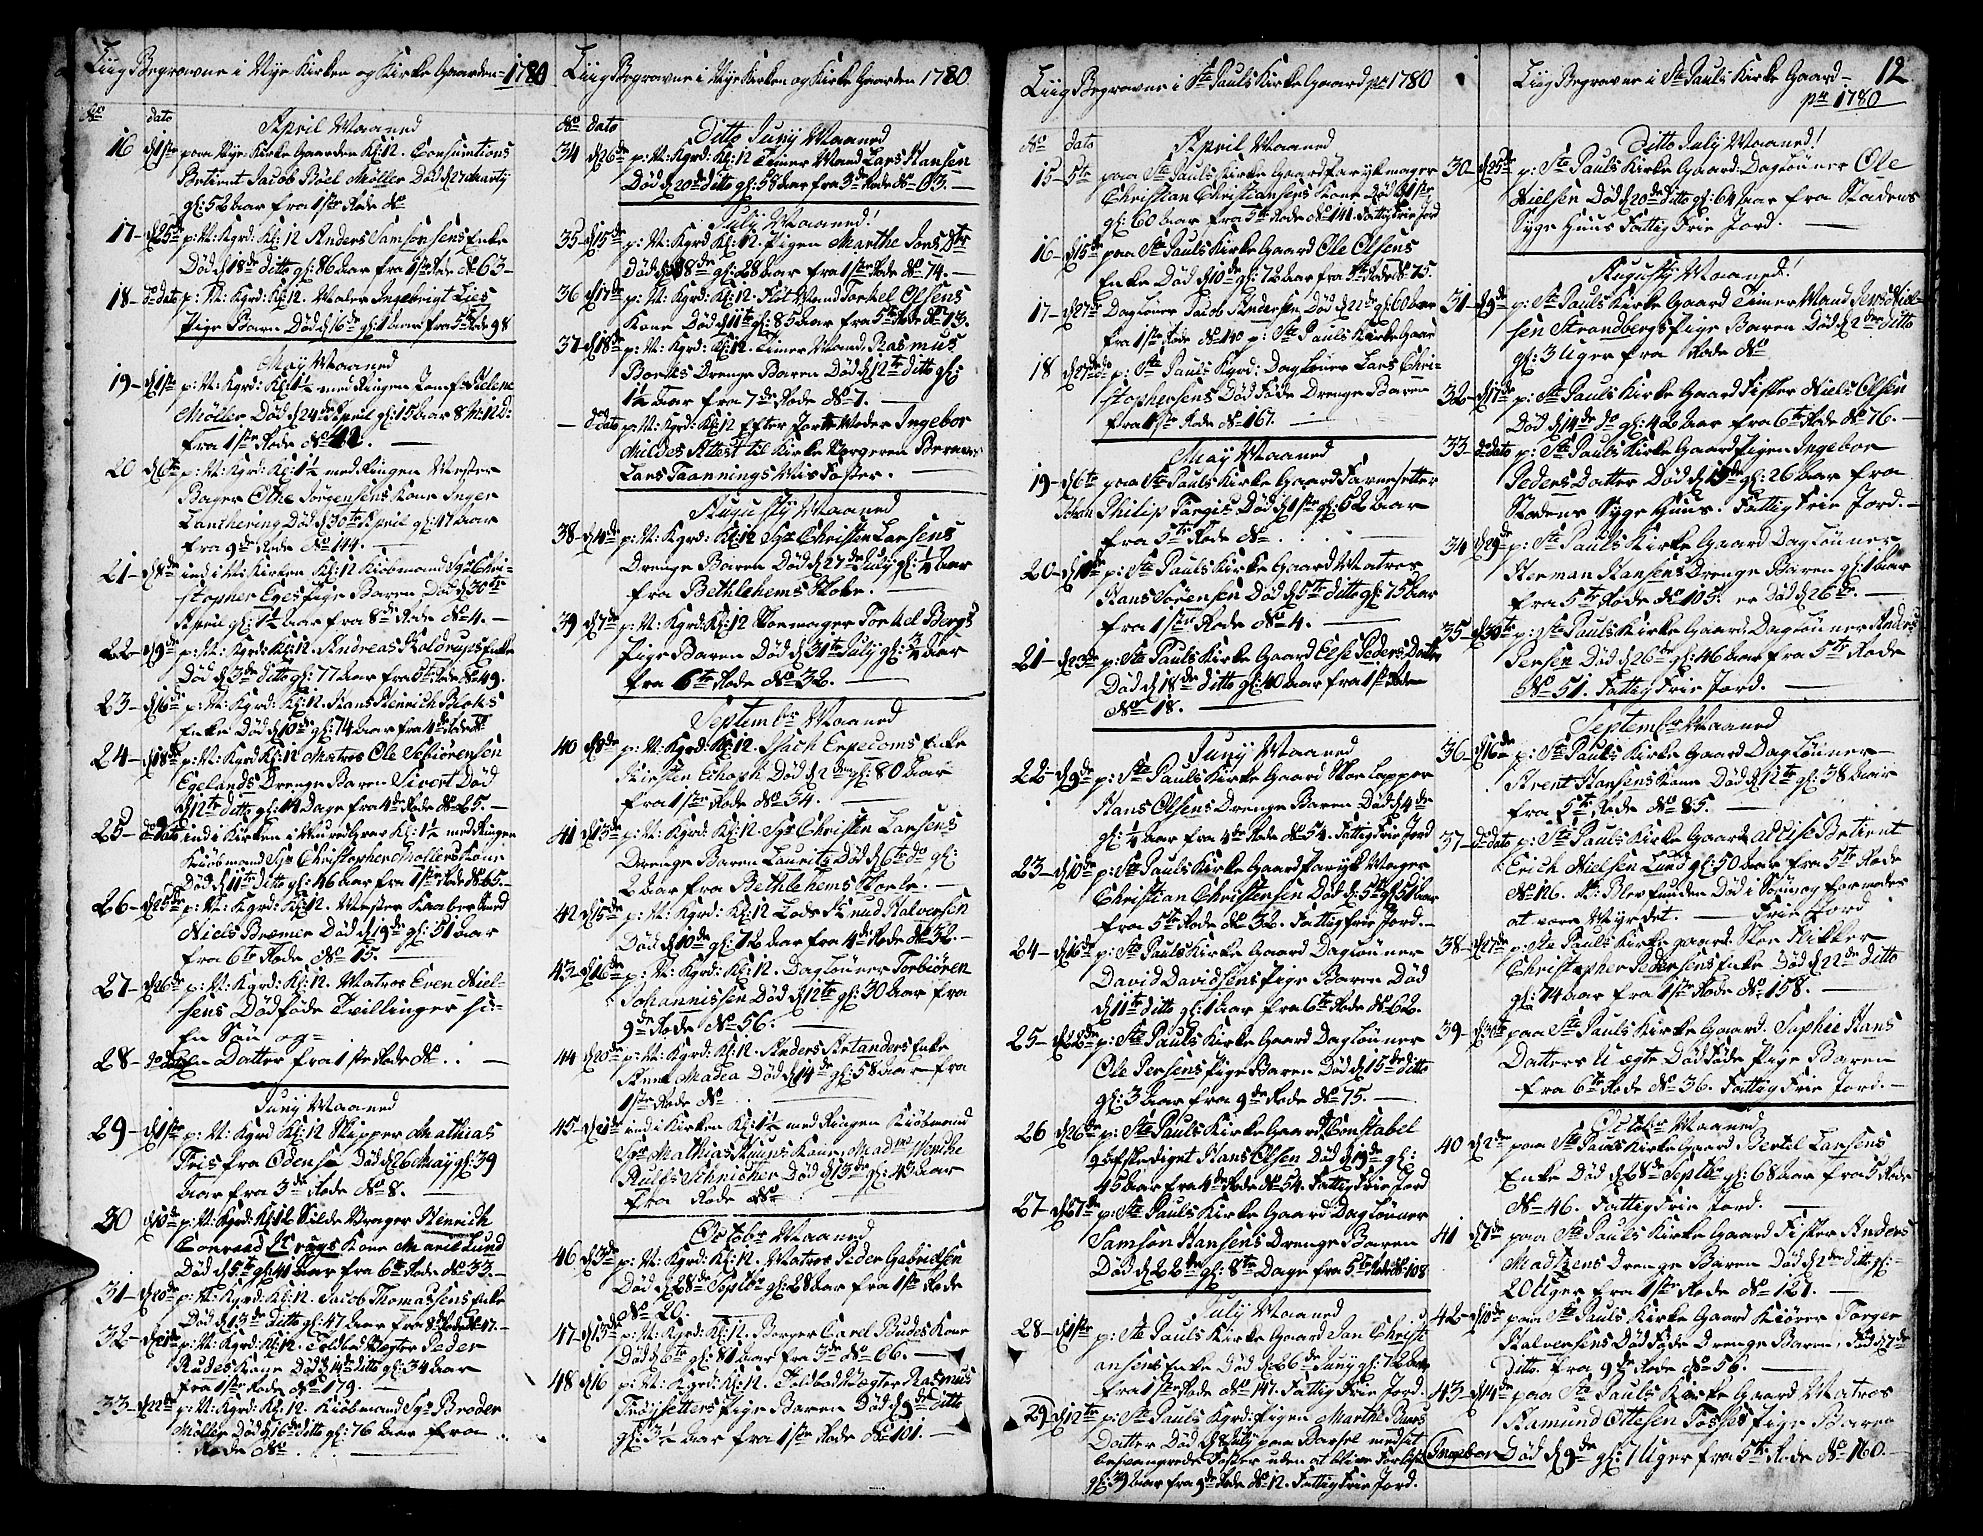 Liig Begravne i Nye Kirken og Kirke Gaarden = 1780
No dato
April Maaned
16 d 1ste paa Nye Kirke Gaarden Kl: 12. Consumtions
Betient Jacob Böel Möller Död d 27 Marty
gl: 52 aar fra 1ste Rode No
17 – d 25de p: N: Kgrd: Kl: 12 Anders Samsonsens Enke
Död d 18de ditto gl: 86 aar fra 1ste Rode No 63 –
18 – do dato p: N: Kgrd: Kl: 12. Maler Ingebrigt Lies
Pige Baren Död d 16de gl: 1 aar fra 5te Rode 98
May Maaned
19 – d 1ste p: N: Kgrd: Kl: 1½ med Ringen Jomfr Helene
Möller Död d 24de April gl: 15 aar 8 M: 12 D:
fra 1ste Rode No 42. –
20 d 6te p: N: Kgrd: Kl: 1½ med Ringen Mester
Bager Othe Jörgensens Kone Inger
Lanthering Död d 30te April gl: 17 aar
fra 9de Rode No 144. –
21 – d 8de ind i N: Kirken Kl: 12 Kiöbmand Sgr Chri-
stopher Eges Pige Baren Död d 30te
April gl: 1½ aar fra 8de Rode No 4. –
22 – d 9de p: N: Kgrd: Kl: 12. Andreas Koldrups Enke
Död d 3de ditto gl: 77 aar fra 5te Rode No 49.
23 – d 16de p: N: Kgrd: Kl: 12. Hans Henrich Bloks
Enke Död d 10de gl: 74 aar fra 4de Rode No
24 – d 18de p: N: Kgrd Kl: 12 Matros Ole Asbiörensen
Egelands Drenge Baren Sivert Död
d 12te ditto gl: 14 Dage fra 4de Rode No 25. –
25 – do dato ind i Kirken i Mured Grav Kl: 1½ med Ringen
Kiöbmand Sgr Christopher Möllers Kone
Död d 11te ditto gl: 46 aar fra 1ste Rode No 65. –
26 – d 25de p: N: Kgrd: Kl: 12. Mester Kaaber Smed
Niels Bræmer Död d 19de gl: 51 aar
fra 6te Rode No 15. –
27 – d 26de p: N: Kgrd: Kl: 12. Matros Even Niel-
sens Död Föde Tvillinger si:-
En Sön og –
28 – do dato En Datter fra 1ste Rode No . . –
Juny Maaned
29 – d 1ste p: N: Kgrd Kl: 12 Skipper Mathias
Fris fra Odense Död d 26 May gl: 39
aar fra 3de Rode No 8. –
30 d 10de p: N: Kgrd: Kl: 12 Silde Vrager Henrich
Conrand Krügs Kone Maril Lund
Död d 5te gl: 41 aar fra 6te Rode No 33. –
31 – d 20de p: N: Kgrd: Kl: 12. Jacob Thomassens Enke
Död d 13de ditto gl: 47 aar fra 8de Rode No 47. –
32 – d 21de p: N: Kgrd: Kl: 12. Toldbod Vægter Peder
Rudes Kone Död d 14de ditto gl: 34 aar
fra 1ste Rode No 179. –
33 – d 22de p: N: Kgrd: Kl: 12. Kiöbmand Sgr Broder
Möller Död d 16de ditto gl: 76 aar fra . .
Rode No
Liig Begravne i Nye Kirken og Kirke Gaarden 1780
No dato
Ditto Juny Maaned
34 d 26de p: N: Kgrd: Kl: 12 Timer Mand Lars Hansen
Död d 20de ditto gl: 58 aar fra 3de Rode No 63. –
July Maaned!
35 – d 15de p: N: Kgrd Kl: 12. Pigen Marthe Jons Dtr
Död d 8de gl: 28 aar fra 1ste Rode No 74. –
36 d 17de p: N: Kgrd: Kl: 12. Flöt Mand Torkel Olsens
Kone Död d 11te gl: 85 aar fra 5te Rode No 73.
37 – d 18de p: N: Kgrd: Kl: 12. Timer Mand Rasmus
Borthes Drenge Baren Död d 12te ditto gl:
1½ aar fra 7de Rode No 7. –
– do dato p: N: Kgrd: Kl: 12 Efter Jorde Moder Ingebor
Mildes Attest til Kirke Værgeren Berner
Lars Taannings Mis Foster. –
Augusty Maaned
38 – d 4de p: N: Kgrd: Kl: 12 Sgr Christen Larsens
Drenge Baren Död d 27de July gl: ½ aar
fra Bethlehems Skole. –
39 d 7de p: N: Kgrd: Kl: 12 Skomager Torkel Bergs
Pige Baren Död d 31te July gl: ¾ aar
fra 6te Rode No 32. –
Septembr Maaned
40 d 8de p: N: Kgrd: Kl: 12. Isach Erpecoms Enke
Kirsten Död d 2den gl: 80 aar
fra 1ste Rode No 34. –
41 d 13de p: N: Kgrd: Kl: 12. Sgr Christen Larsens
Drenge Baren Lauritz Död d 6te do gl:
2 aar fra Bethlehems Skole. –
42 d 15de p: N: Kgrd: Kl: 12 Lods Knud Halvorsen
Död d 10de gl: 72 aar fra 4de Rode No 32. –
43 – d 16de p: N: Kgrd: Kl: 12. Daglönner Torbiören
Johannissen Död d 12te gl: 30 aar fra
9de Rode No 56. –
44 d 20de p: N: Kgrd: Kl: 12. Anders Aetanders Enke
Anne Madea Död d 14de gl: 58 aar fra
1ste Rode No . . –
45 – d 21de ind i Kirken Kl: 1½ med Ringen Kiöbmand
Sgr Mathias Kruuses Kone Madme Wenche
Rulds Schnicher Död d 13de gl: 45 aar
fra Rode No
Octobr Maaned
46 d 3de p: N: Kgrd: Kl: 12. Matros Peder Gabrielsen
Död d 28de Septbr gl: 28 aar fra 1ste Rode
No 20. –
47 – d 13de p: N: Kgrd: Kl: 12. Borger Carel Budes Kone
Död d 6te gl: 81 aar fra 3de No 66. –
48 d 16 p: N: Kgrd: Kl: 12. Toldbod Vægter Rasmus
Tröysetters Pige Baren Död d 9de ditto
gl: 3½ aar fra 1ste Rode No 101. –
Liig Begravne i Ste Pauls Kirke Gaard pro 1780
No dato
April Maaned
15 – 5te paa Ste Pauls Kirke Gaard Parykmager
Christian Christiansens Kone Död d 1ste
gl: 60 aar fra 5te Rode No 141. Fattig Frie Jord
16 – d 15de paa Ste Pauls Kirke Gaard Ole Olsens
Enke Död d 10de gl: 72 aar fra 8de Rode No 75.
17 – d 27de Daglöner Jacob Andersen Död d 22de gl: 60 aar
fra 1ste Rode No 140 p: Ste Pauls Kirke Gaar
18 d 27de p: Ste Pauls Kgrd: Daglöner Lars Chri-
stophersens Död Föde Drenge Baren
fra 1ste Rode No 167. –
May Maaned
19 – d 6te paa Ste Pauls Kirke Gaard Farvesetter
Johan Philip Fargis Död d 1ste gl: 52 aar
fra 5te Rode No . . –
20 – d 10de p: Ste Pauls Kirke Gaard Matros
Hans Sörensen Död d 5te ditto gl: 75 aar
fra 1ste Rode No 4. –
21 – d 23de p: Ste Pauls Kirke Gaard Else Peders Datter
Död d 18de ditto gl: 40 aar fra 1ste Rode
No 18. –
Juny Maaned
22 – d 9de p: Ste Pauls Kirke Gaard Skoe Lapper
Hans Olsens Drenge Baren Död d 4de
gl: ¼ aar fra 4de Rode No 54. Fattig Frie Jord
23 – d 10de p: Ste Pauls Kirke Gaard Paryk Mager
Christian Christensen Död d: 5te gl: 51 aar
fra 5te Rode No 32. Fattig Frie Jord. –
24 – d 16de p: Ste Pauls Kirke Gaard Daglönner
David Davidsens Pige Baren Död
d 11te ditto gl: 1 aar fra 6te Rode No 62.
25 – d 22de p: Ste Pauls Kirke Gaard Daglönner
Ole Persens Pige Baren Död d 15de ditto
gl: 3 aar fra 9de Rode No 75. –
26 d 26de p: Ste Pauls Kirke Gaard Constabel
afskediget Hans Olsen Död d 19de gl:
45 aar fra 4de Rode No 54. Fattig Frie Jord
27 – d 27de p: Ste Pauls Kirke Gaard Daglönner
Samson Hansens Drenge Baren
Död d 22de gl: 8te Dage fra 5te Rode No 108
July Maaned
28 – d 1ste p: Ste Pauls Kirke Gaard Jan Christi
ansens Enke Död d 26de Juny gl: 72 aar
fra 1ste Rode No 147. Fattig Frie Jord.
29 – d 12te p: Ste Pauls Kgrd: Pigen Marthe Baars
Datter Död d 8 July paa Barsel med sit
besvangrede Foster uden at blive Forlöst
gl: 39 aar fra 9de Rode No 12. Fattig Frie Jord.
Liig Begravne i Ste Pauls Kirke Gaard – 12
pro 1780
Ditto July Maaned!
30 – d 25de p: Ste Pauls Kirke Gaard: Daglönner Ole
Nielsen Död d 20de ditto gl: 64 aar fra Stadens
Syge Huus Fattig Frie Jord. –
Augusty Maaned!
31 – d 9de p: Ste Pauls Kirke Gaard Timer Mand Jens Niel-
sen Strandbergs Pige Baren Död d 2den ditto
gl: 3 Uger fra Rode No
32 – d 17de p: Ste Pauls Kirke Gaard Fisker Niels Olsen
Död d 14de do gl: 42 aar fra 6te Rode No 76. –
33 – do dato p: Ste Pauls Kirke Gaard Pigen Ingebor
Peders Datter Död d 13de gl: 26 aar fra
Stadens Syge Huus. Fattig Frie Jord. –
34 d 29de p: Ste Pauls Kirke Gaard Daglönner
Herman Hansens Drenge Baren gl: 1 aar
fra 5te Rode No 105. er Död d 26de. –
35 – d 30te p: Ste Pauls Kirke Gaard Daglönner Anders
Persen Död d 26de gl: 46 aar fra 5te Rode
No 51. Fattig Frie Jord. –
Septembr Maaned
36 – d 16de p: Ste Pauls Kirke Gaard Daglönner –
Arent Hansens Kone Död d 12te gl: 38 aar
fra 5te Rode No 85. –
37 – do dato p: Ste Pauls Kirke Gaard Accise Betient
Erich Nielsen Lund gl: 50 aar fra 5te Rode
No 126. N: Blev funden Död i Söen og formodes
at være Myrdet. – Frie Jord
38 – d 27de p: Ste Pauls Kirke gaard. Skoe Flikker
Christopher Pedersens Enke Död d 22de ditto
gl: 74 aar fra 1ste Rode No 158. –
39 – d 30te paa Ste Pauls Kirke Gaard. Sophie Hans
Datters U ægte Död Föde Pige Baren
fra 6te Rode No 36. Fattig Frie Jord. –
Octobr Maaned
40 d 2de paa Ste Pauls Kirke Gaard. Bertel Larsens
Enke Död d 28de Septbr gl: 68 aar fra 5 Rode
No 46. Fattig Frie Jord. –
41 d 7de paa Ste Pauls Kirke Gaard Fisker Anders
Madtzens Drenge Baren Död d 2den ditto gl: –
20 Uger fra 1ste Rode No 121. –
42 – d 10de paa Ste Pauls Kirke Gaard Kiörer Torger
Halvorsens Död Föde Drenge Baren, Död d 7de
Ditto. fra 9de Rode No 56. –
43 – d 14de paa Ste Pauls Kirke Gaard Matros
Aamund Ottesen Tosses Pige Baren
Ingebor Död d 9de gl: 7 Uger fra 5te Rode No 160. –